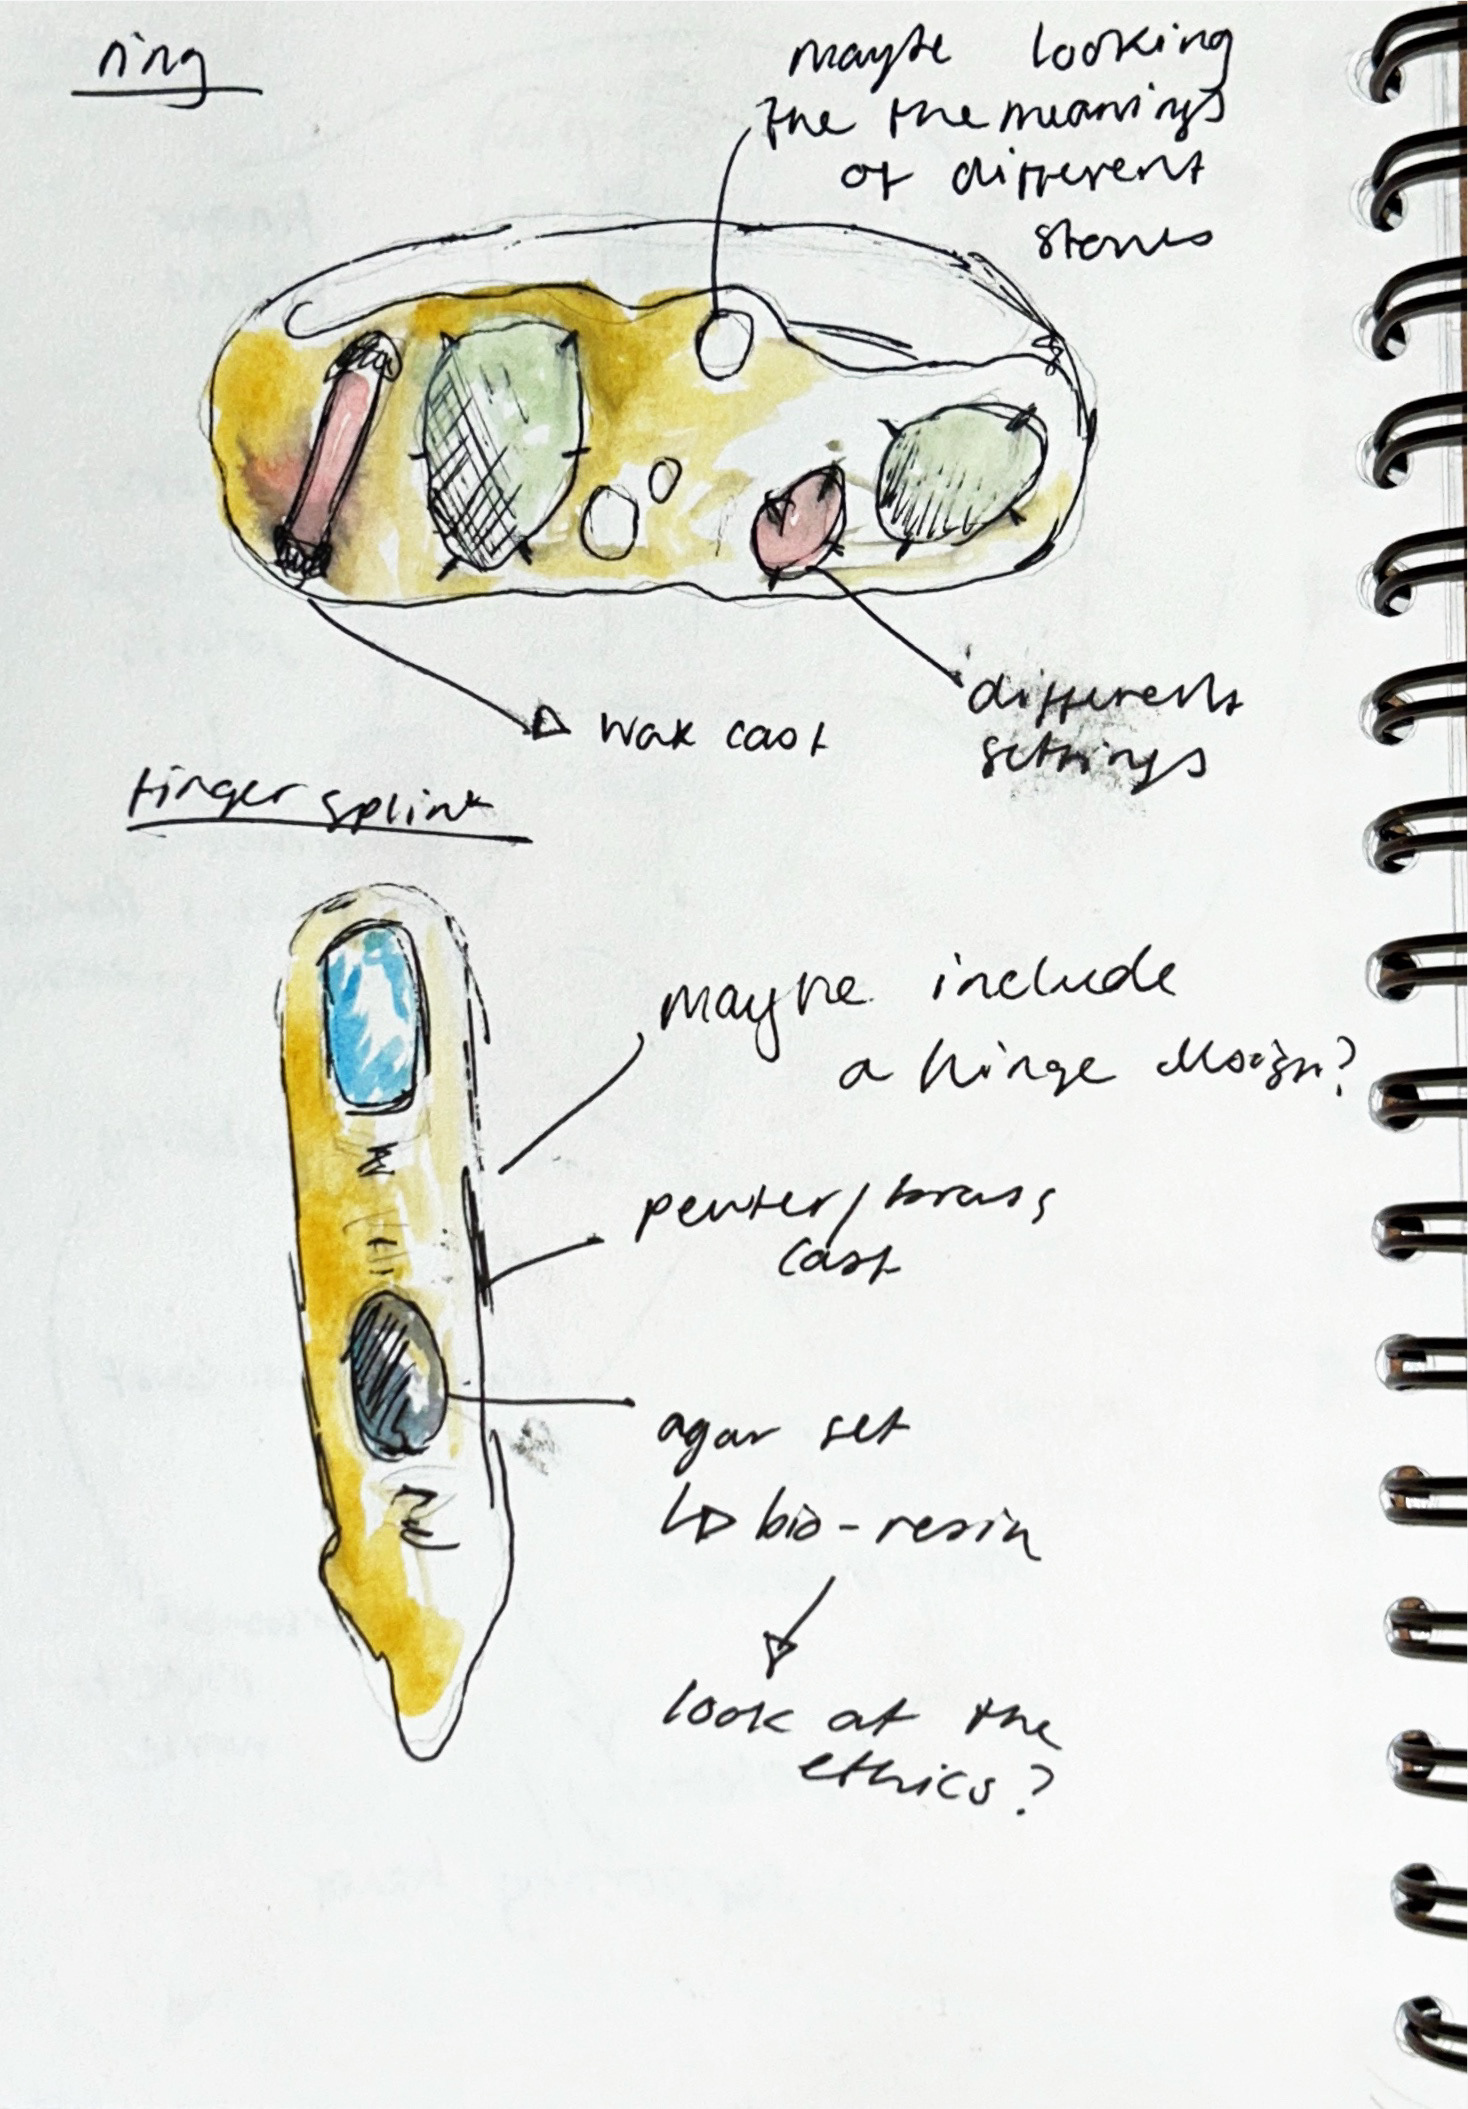 ring
maybe looking
the the meanings
of different
stones
different
settings
wax cast
finger splint
maybe include
a hinge design?
pewter/brass
cast
agar set
↳ bio-resin
look at the
ethics?